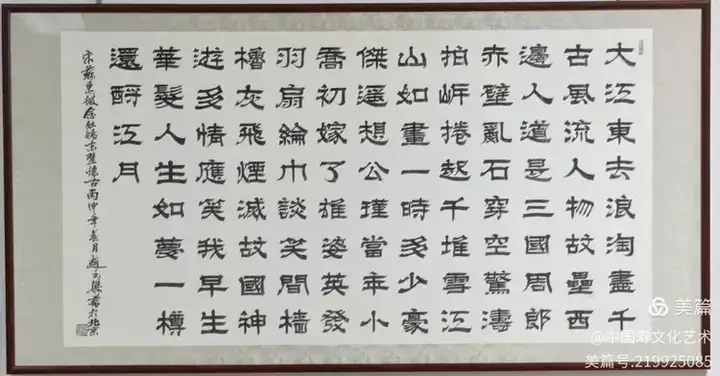 大江東去浪淘盡千
古風流人物故壘西
邊人道是三國周郎
赤壁亂石穿空驚濤
拍岸捲起千堆雪江
山如畫一時多少豪
傑遥想公瑾當年小
喬初嫁了雄姿英發
羽扇綸巾談笑間檣
櫓灰飛煙滅故國神
遊多情應笑我早生
華髮人生如夢一樽
還酹江月
宋蘇東坡念奴嬌赤壁懷古丙申年月書於北京
美篇
@中国寿文化艺术
美篇号:219925085